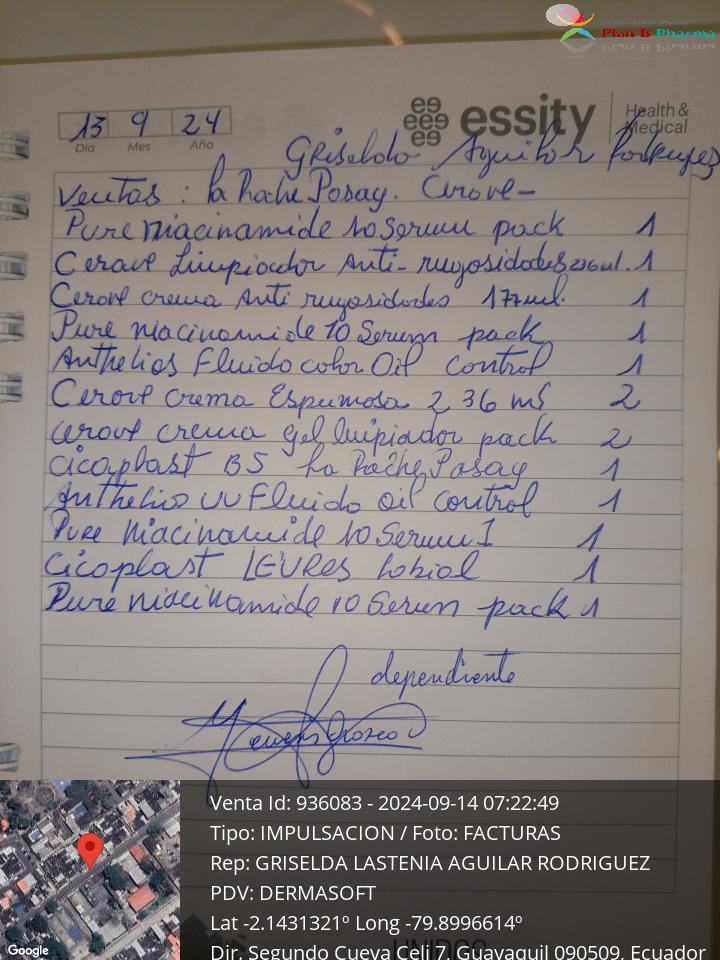 Plan B Pharma
essity
Health & Medical
13 9 24
Día Mes Año
Griselda Aguilar Rodriguez
Ventas : la Roche Posay. Cerave -
Pure niacinamide 10 Serum pack 1
Cerave Limpiador Anti-rugosidades 236ml. 1
Cerave crema Anti rugosidades 177ml. 1
Pure niacinamide 10 Serum pack 1
Anthelios Fluido color Oil control 1
Cerave crema Espumosa 236 ml 2
cerave crema gel limpiador pack 2
Cicaplast B5 la Roche Posay 1
Anthelios uv Fluido oil control 1
Pure niacinamide 10 Serum I 1
Cicaplast LEVRES labial 1
Pure niacinamide 10 Serum pack 1
dependiente
Venta Id: 936083 - 2024-09-14 07:22:49
Tipo: IMPULSACION / Foto: FACTURAS
Rep: GRISELDA LASTENIA AGUILAR RODRIGUEZ
PDV: DERMASOFT
Lat -2.1431321º Long -79.8996614º
Dir. Segundo Cueva Celi 7, Guayaquil 090509, Ecuador
Google